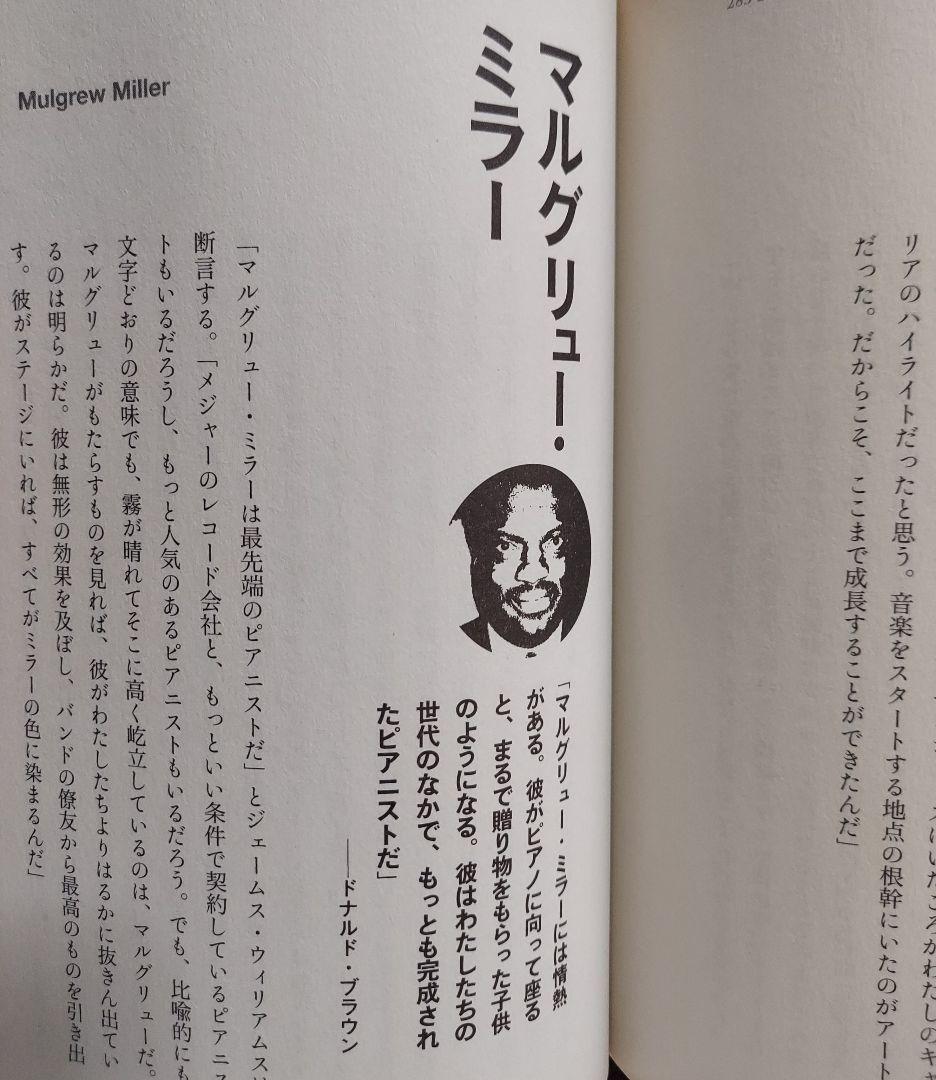 リアのハイライトだったと思う。音楽をスタートする地点の根幹にいたのがアート
だった。だからこそ、ここまで成長することができたんだ」
マルグリュー・
ミラー
Mulgrew Miller
「マルグリュー・ミラーには情熱
がある。彼がピアノに向って座る
と、まるで贈り物をもらった子供
のようになる。彼はわたしたちの
世代のなかで、もっとも完成され
たピアニストだ」
──ドナルド・ブラウン
「マルグリュー・ミラーは最先端のピアニストだ」とジェームス・ウィリアムス
断言する。「メジャーのレコード会社と、もっといい条件で契約しているピアニス
トもいるだろうし、もっと人気のあるピアニストもいるだろう。でも、比喩的にも
文字どおりの意味でも、霧が晴れてそこに高く屹立しているのは、マルグリューだ。
マルグリューがもたらすものを見れば、彼がわたしたちよりはるかに抜きん出てい
るのは明らかだ。彼は無形の効果を及ぼし、バンドの僚友から最高のものを引き出
す。彼がステージにいれば、すべてがミラーの色に染まるんだ」